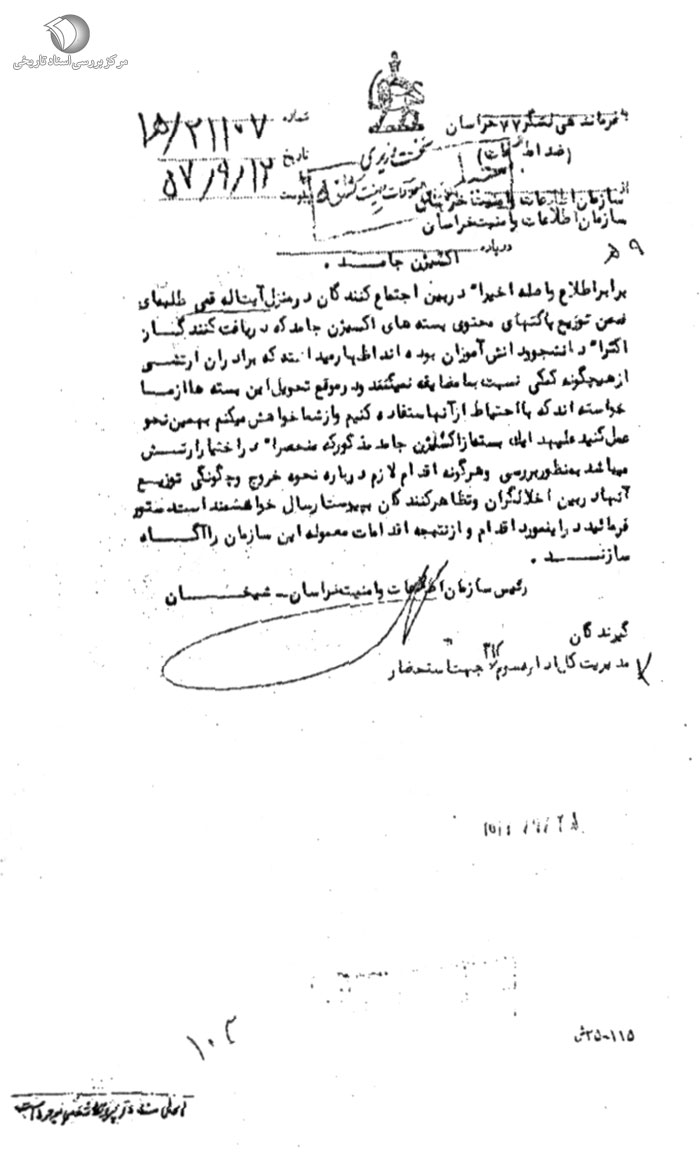 مرکز بررسی اسناد تاریخی
بفرماندهی لشگر ۷۷ خراسان
(ضد اطلاعات)
شماره ۲۱۱۰۷/۵۱۵
نخست وزیری
تاریخ ۵۷/۹/۱۲
پیوست
سازمان اطلاعات و امنیت کشور
سازمان اطلاعات و امنیت خراسان
۹ ه‍
درباره اکسیژن جامد .
برابر اطلاع واصله اخیراً در بین اجتماع کنندگان در منزل آیت اله قمی طلبه‌ای
ضمن توزیع پاکتهای محتوی بسته های اکسیژن جامد که دریافت کنندگان
اکثراً دانشجو و دانش آموزان بوده اند اظهار میداشته که برادران ارتشی
از هیچگونه کمکی نسبت بما مضایقه نمیکنند و در موقع تحویل این بسته ها از ما
خواسته اند که با احتیاط از آنها استفاده کنیم و از شما خواهش میکنم بهمین نحو
عمل کنید علیهذا یک بسته از اکسیژن جامد مذکور که منحصراً در اختیار ارتش
میباشد بمنظور بررسی و هرگونه اقدام لازم درباره نحوه خروج و چگونگی توزیع
آنها در بین اخلالگران و تظاهر کنندگان بپیوست ارسال خواهشمند است دستور
فرمائید در اینمورد اقدام و از نتیجه اقدامات معموله این سازمان را آگاه
سازند .
رئیس سازمان اطلاعات و امنیت خراسان - شیخان
گیرندگان
مدیریت کل اداره سوم ۳۱۲ جهت استحضار
۱۰۳
۲۵-۱۱۵ش